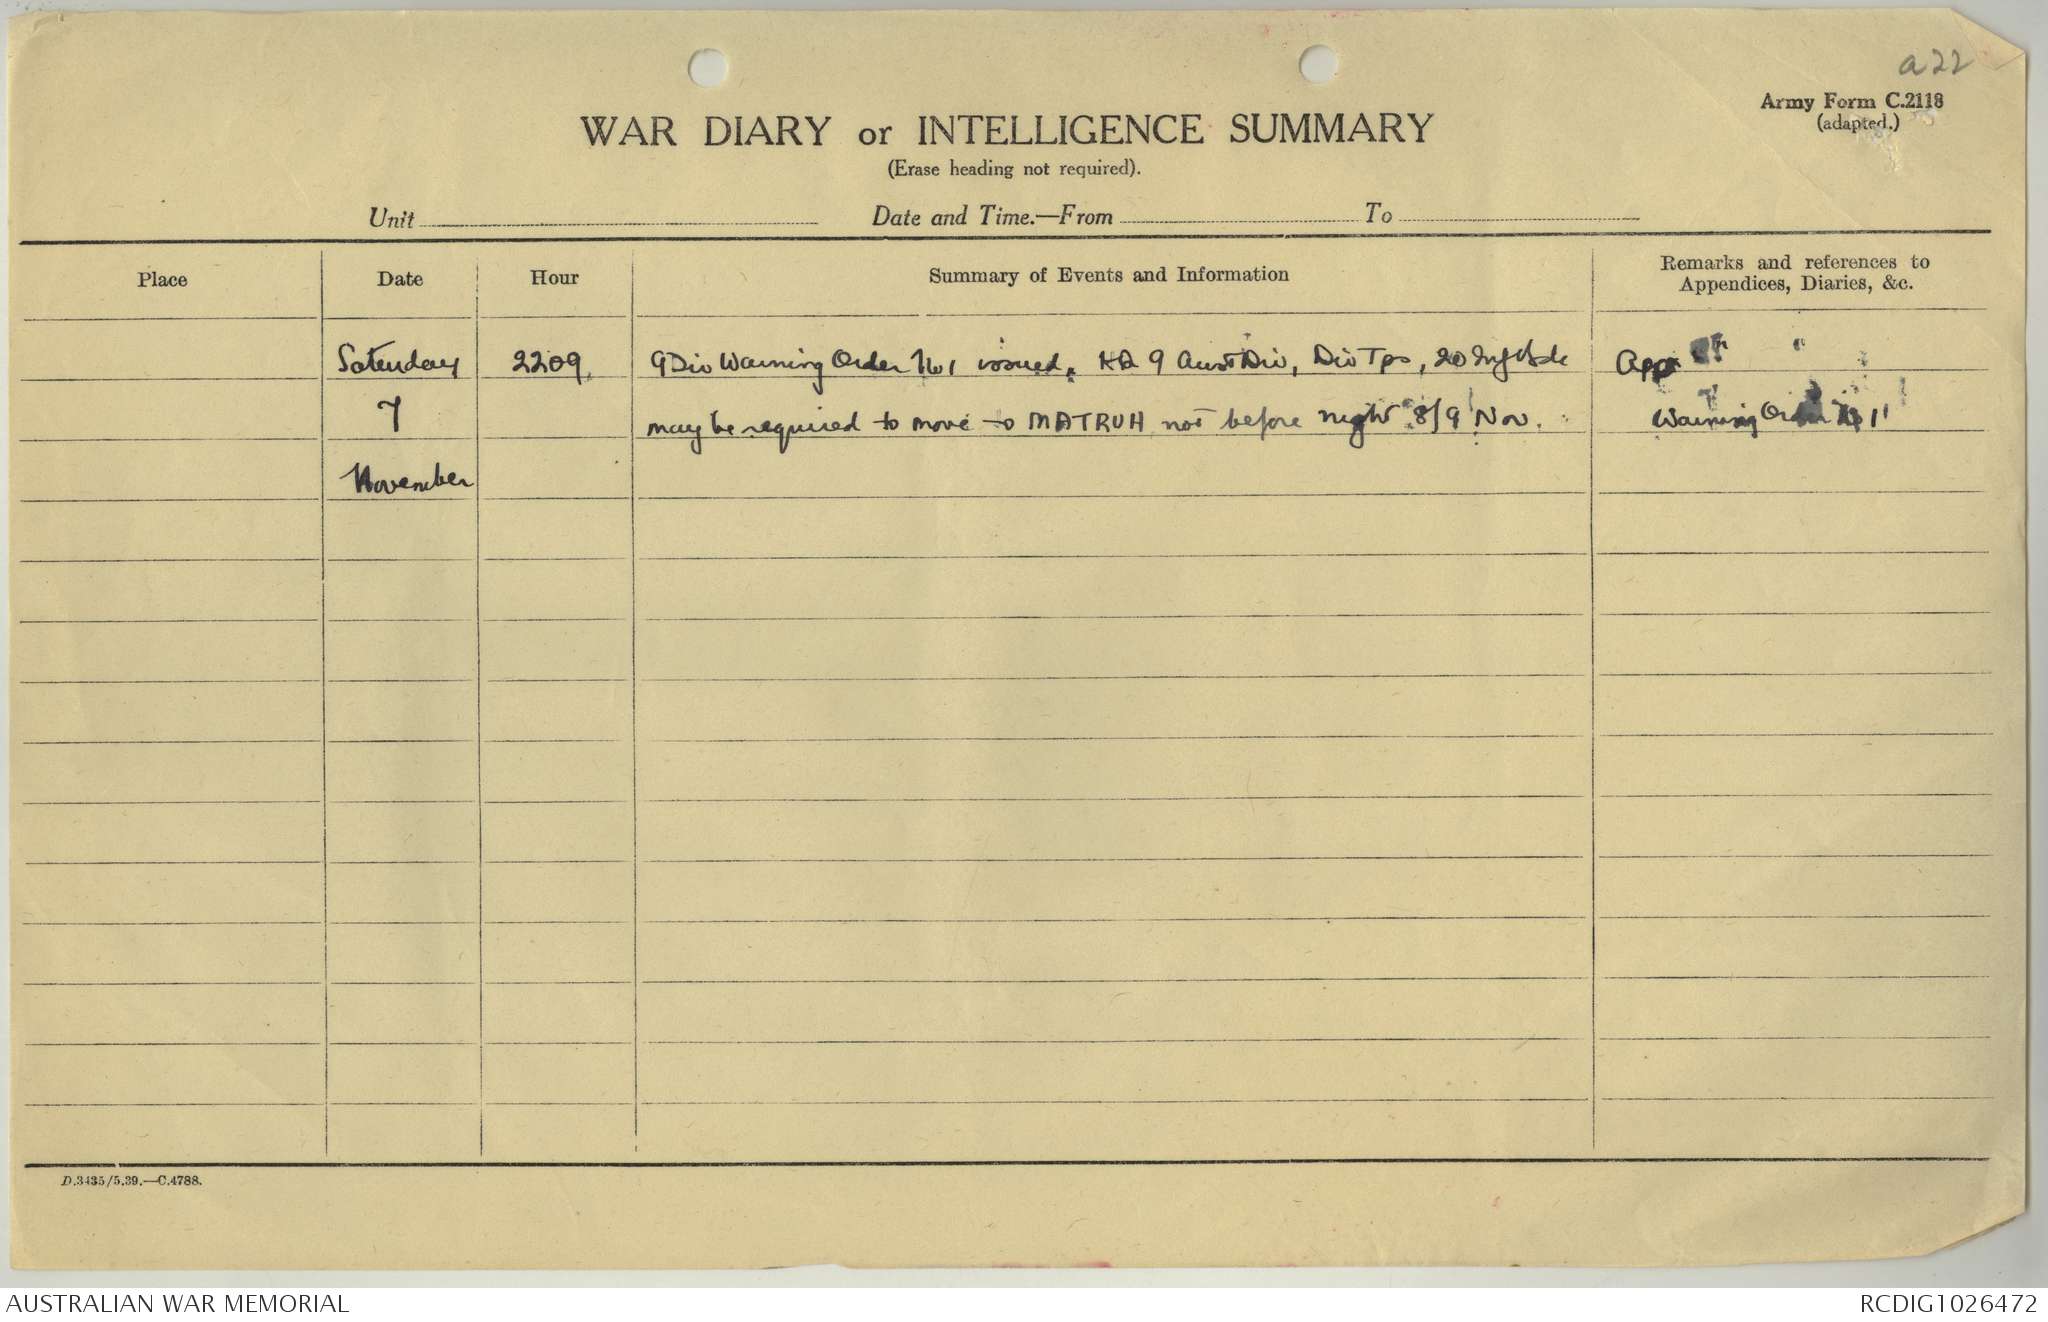 a22
Army Form C.2118
(adapted.)
WAR DIARY or INTELLIGENCE SUMMARY
(Erase heading not required).
Unit Date and Time.—From To
Place Date Hour Summary of Events and Information Remarks and references to
Appendices, Diaries, &c.
Saturday 2209 9 Div Warning Order No 1 issued. HQ 9 Aust Div, Div Tps, 20 Inf Bde App
7 may be required to move to MATRUH not before night 8/9 Nov. Warning Order No 1
November
D.3435/5.39.—C.4788.
AUSTRALIAN WAR MEMORIAL RCDIG1026472